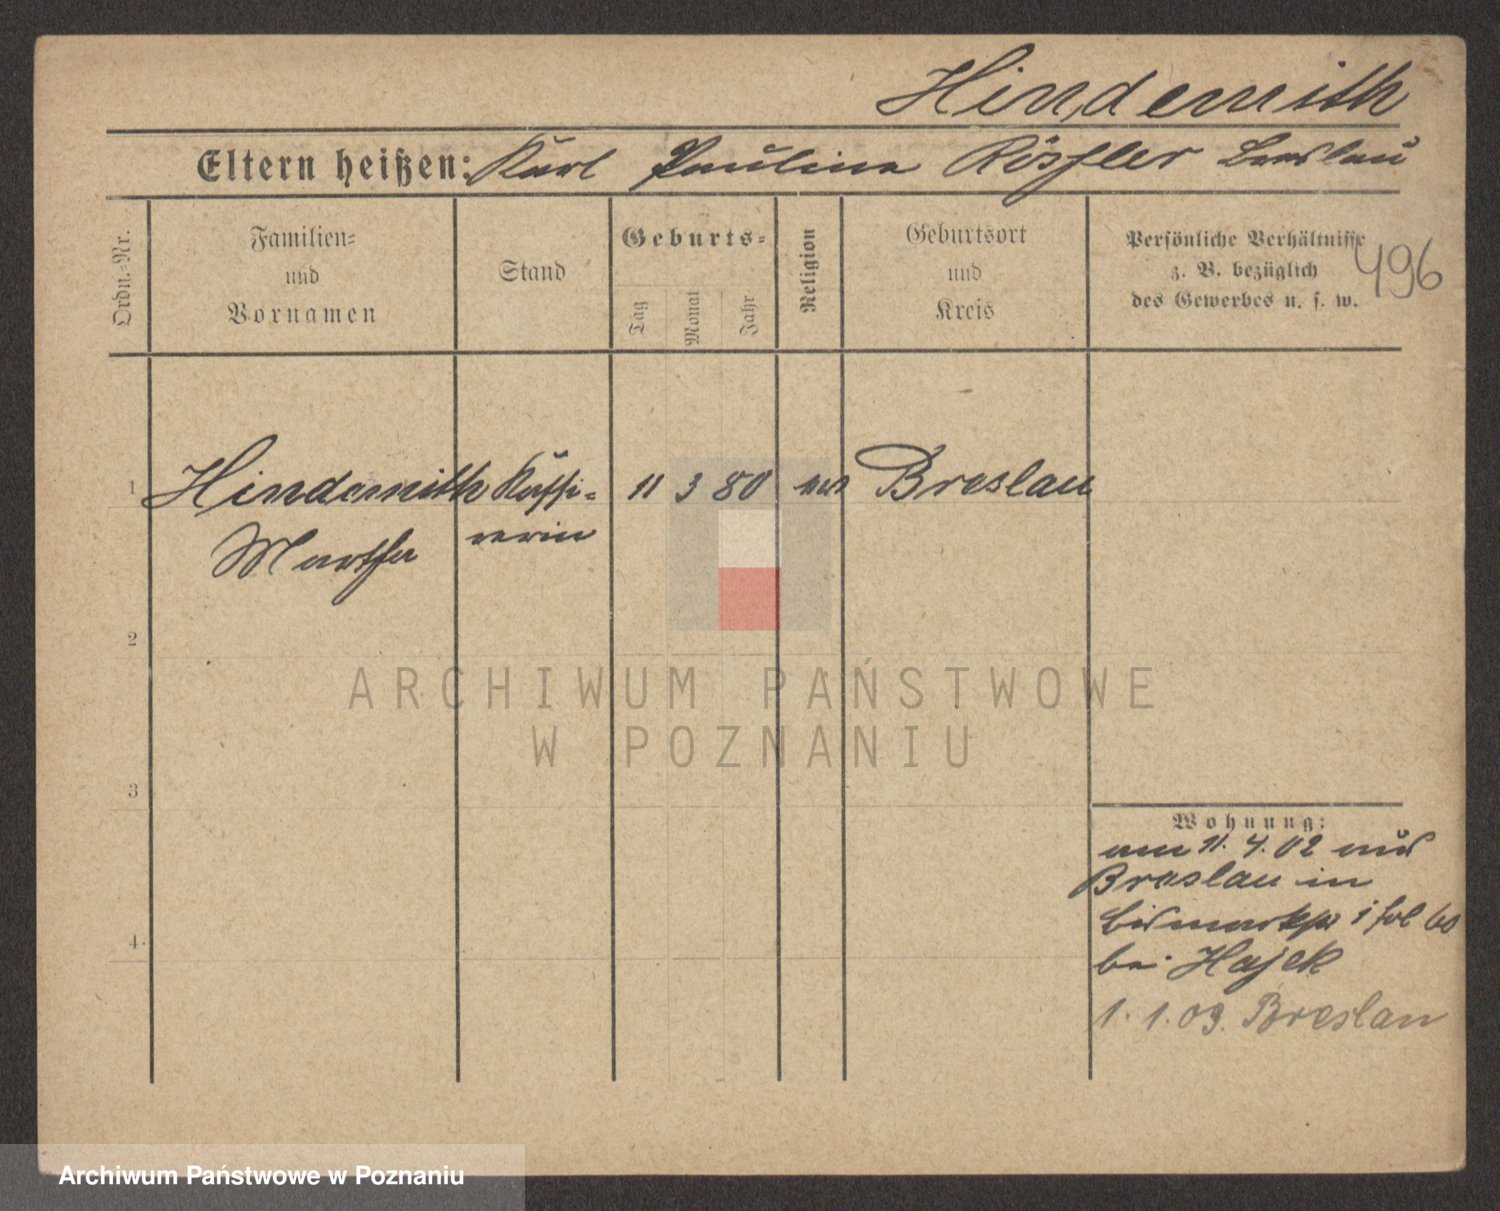 Hindemith
Eltern heißen: Karl Pauline Rösler Breslau
Ordn.-Nr.
Familien-
und
Vornamen
Stand
Geburts-
Tag
Monat
Jahr
Religion
Geburtsort
und
Kreis
Persönliche Verhältnisse
z. B. bezüglich
des Gewerbes u. s. w.
496
1 Hindemith Kassi- 11 3 80 Breslau
Martha rerin
2
3
4
Wohnung:
am 11. 4. 02 aus
Breslau in
1
bei Hajek
1. 1. 09. Breslau
ARCHIWUM PAŃSTWOWE
W POZNANIU
Archiwum Państwowe w Poznaniu